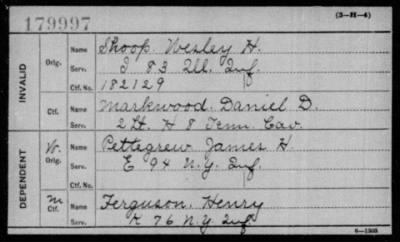 179997
(3-H-4)
INVALID
Orig. Name Shoop. Wesley H.
Serv. I 83 Ill. Inf.
Ctf. No. 182129
Ctf. Name Markwood. Daniel D.
Serv. 2 Lt. H 8 Tenn. Cav.
DEPENDENT
W. Orig. Name Pettegrew James H.
Serv. E 94 N.Y. Inf.
Ctf. No.
M Ctf. Name Ferguson. Henry
Serv. K 76 N.Y. Inf.
6-1588